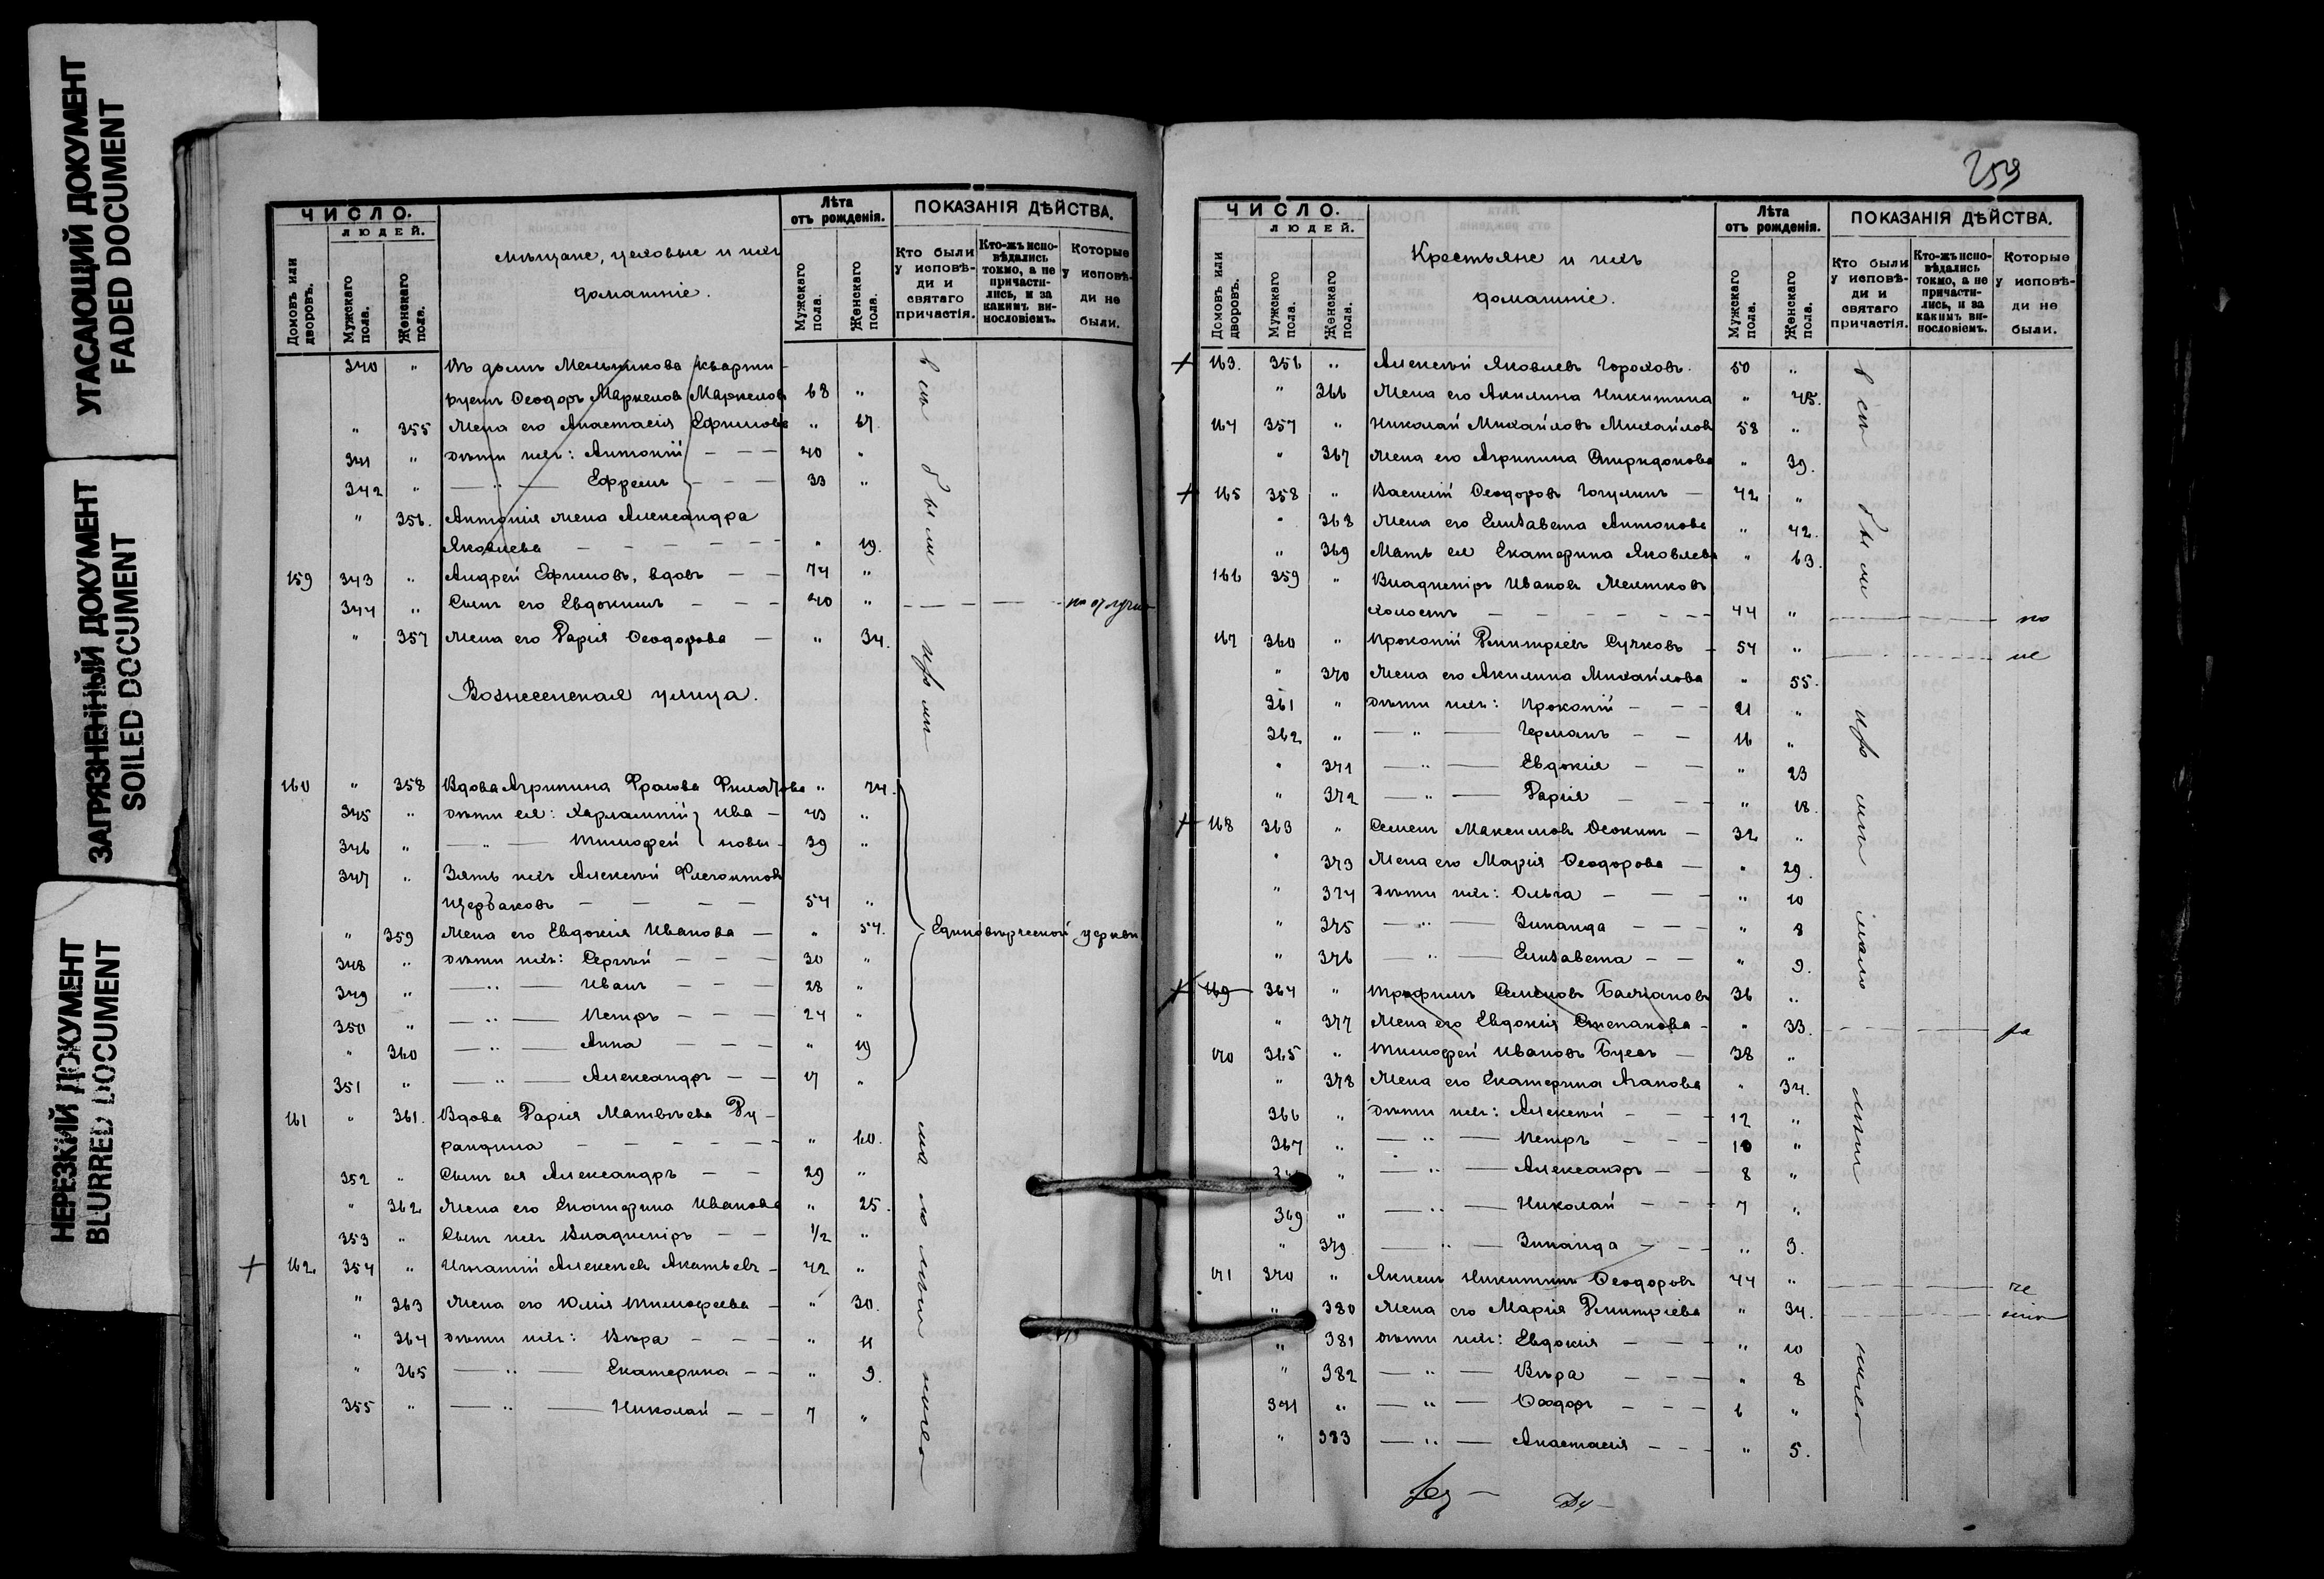 УГАСАЮЩИЙ ДОКУМЕНТ
FADED DOCUMENT
ЗАГРЯЗНЕННЫЙ ДОКУМЕНТ
SOILED DOCUMENT
НЕРЕЗКИЙ ДОКУМЕНТ
BLURRED DOCUMENT
ЧИСЛО.
ЛЮДЕЙ.
Домовъ или дворовъ.
Мужскаго пола.
Женскаго пола.
Мѣщане, цеховые и ихъ
домашніе.
Лѣта
отъ рожденія.
Мужскаго пола.
Женскаго пола.
ПОКАЗАНІЯ ДѢЙСТВА.
Кто были
у исповѣ-
ди и
святаго
причастія.
Кто-жъ испо-
вѣдались
токмо, а не
причасти-
лись, и за
какимъ ви-
нословіемъ.
Которые
у исповѣ-
ди не
были.
340 " Въ домѣ Мельникова кварти-
руетъ Ѳеодоръ Маркеловъ Маркеловъ 68 "
" 355 Жена его Анастасія Ефимова " 67
341 " Дѣти ихъ: Антоній 40 "
342 " — " — Ефремъ 33 "
" 356. Антонія жена Александра
Яковлева " 19.
159 343 " Андрей Ефимовъ, вдовъ 74 "
344 " Сынъ его Евдокимъ 40 "
" 357 Жена его Дарія Ѳеодорова " 34.
Вознесенская улица.
160 " 358 Вдова Агрипина Фролова " 74.
345 " Дѣти ея: Харлампій Ива- 43 "
346 " — " — Тимофей новы 39 "
347 " Зять ихъ Алексѣй Флегонтовъ
Щербаковъ 54 "
" 359 Жена его Евдокія Иванова " 54.
Единовѣрческой церкви
348 " Дѣти ихъ: Сергѣй 30 "
349 " — " — Иванъ 28 "
350 " — " — Петръ 24 "
" 360 — " — Анна " 19
351 " — " — Александръ 17 "
161 " 361. Вдова Дарія Матвѣева Ду-
рандина " 60.
352 " Сынъ ея Александръ 29 "
" 362 Жена его Екатерина Иванова " 25.
353 " Сынъ ихъ Владиміръ 1/2 "
162. 354 " Игнатій Алексѣевъ Акатьевъ 42 "
" 363 Жена его Юлія Тимофеева " 30.
" 364 Дѣти ихъ: Вѣра " 11
" 365 — " — Екатерина " 9.
355 " — " — Николай 7 "
259
ЧИСЛО.
ЛЮДЕЙ.
Домовъ или дворовъ.
Мужскаго пола.
Женскаго пола.
Крестьяне и ихъ
домашніе.
Лѣта
отъ рожденія.
Мужскаго пола.
Женскаго пола.
ПОКАЗАНІЯ ДѢЙСТВА.
Кто были
у исповѣ-
ди и
святаго
причастія.
Кто-жъ испо-
вѣдались
токмо, а не
причасти-
лись, и за
какимъ ви-
нословіемъ.
Которые
у исповѣ-
ди не
были.
163. 356 " Алексѣй Яковлевъ Гороховъ. 50 "
" 366 Жена его Акилина Никитина " 45.
164 357 " Николай Михайловъ Михайловъ 58 "
" 367 Жена его Агрипина Спиридонова " 39.
165 358 " Василій Ѳеодоровъ 42 "
" 368 Жена его Елизавета Антонова " 42.
" 369 Мать ея Екатерина Яковлева " 63.
166 359 " Владиміръ Ивановъ
холостъ 44 "
167 360 " Прокопій Димитріевъ Сучковъ 54 "
" 370 Жена его Акилина Михайлова " 55.
361 " Дѣти ихъ: Прокопій 21 "
362 " — " — Германъ 16 "
" 371 — " — Евдокія " 23
" 372 — " — Дарія " 18.
168 363 " Семенъ Максимовъ Осокинъ 32 "
" 373 Жена его Марія Ѳеодорова " 29.
" 374 Дѣти ихъ: Ольга " 10
" 375 — " — Зинаида " 8
" 376 — " — Елизавета " 9.
169 364 " Трофимъ Семеновъ 36 "
" 377 Жена его Евдокія Степанова " 33.
170 365 " Тимофей Ивановъ 38 "
" 378 Жена его Екатерина Агапова " 34.
366 " Дѣти ихъ: Алексѣй 12 "
367 " — " — Петръ 10 "
" — " — Александръ 8 "
369 " — " — Николай 7 "
" 379 — " — Зинаида " 3.
171 370 " Никитинъ Ѳеодоровъ 44 "
" 380 Жена его Марія Димитріева " 34.
" 381 Дѣти ихъ: Евдокія " 10
" 382 — " — Вѣра " 8
371 " — " — Ѳеодоръ 6 "
" 383 — " — Анастасія " 5.